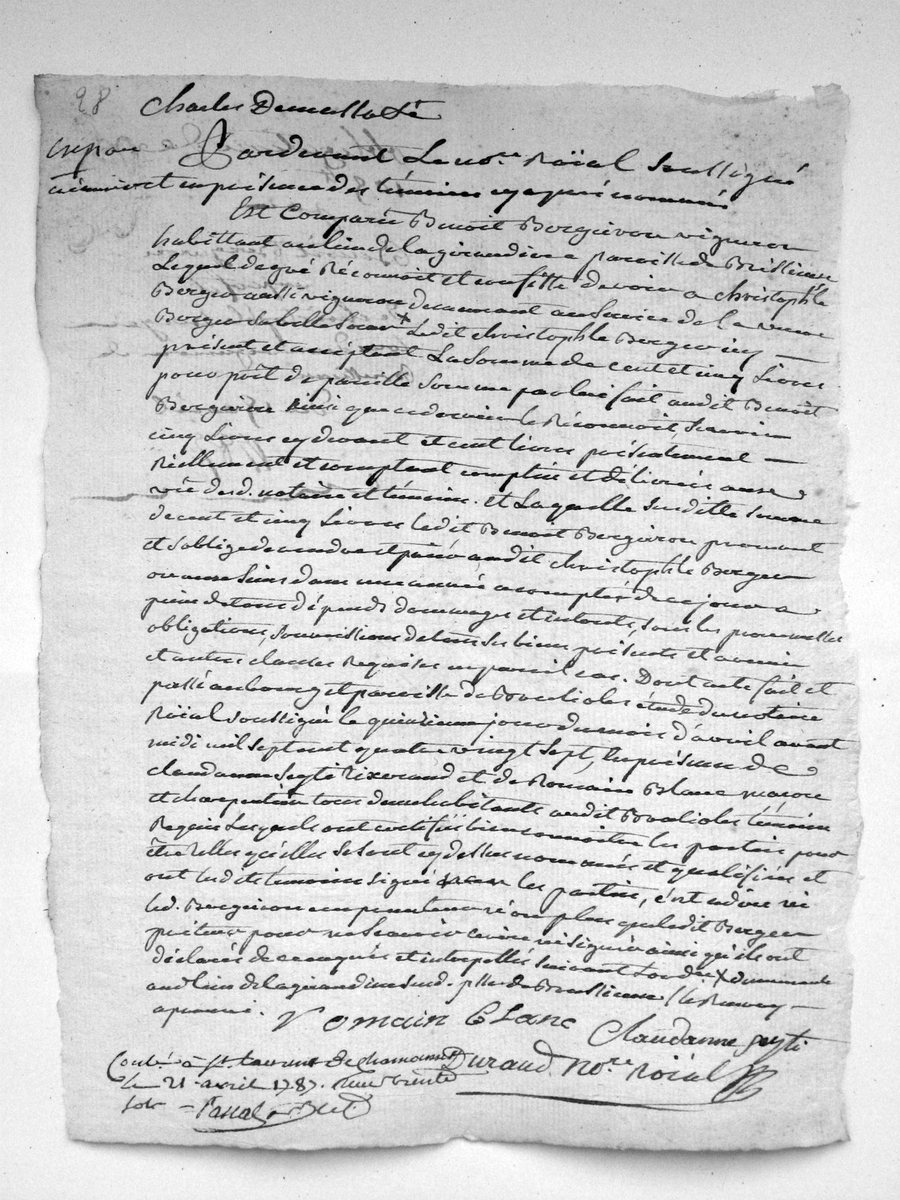 98
Charles
Pardevant Le no.re Roïal soussigné
et en présence des témoins cy après nommés
Est Comparû Benoit Bergeron vigneron
habittant au lieu de la girandiere paroisse de Brussieux
Lequel de gré Reconnoit et confesse devoir a christophle
Berger aussi vigneron demeurant au service de la veuve
Berger sa belle soeur x Ledit christophle Berger icy –
présent et acceptant La somme de cent et cinq Livres
pour prêt de pareille somme par lui fait audit Benoit
Bergeron ainsi que ce dernier le Reconnoit, Scavoir
cinq Livres cy devant et cent livres présentement –
Réellement et comptant comptés et délivrés a vue
vüe des d. notaire et témoins. et Laquelle susditte somme
de cent et cinq Livres ledit Benoit Bergeron promet
et s'oblige de rendre et païer audit christophle Berger
ou aux siens dans une année a compter de ce jour a
peine de tous dépends domages et interets, sous les
obligations, soumissions de tous ses biens présents et avenir
et autres clauses Requises en pareil cas. Dont acte fait et
passé au bourg et paroisse de étude du notaire
Roïal soussigné le quinzieme jour du mois d'avril avant
midi mil sept cent quatre vingt sept, En présence de
claudanne Seyté et de Romain Blanc
et charpentier tous deux habitants audit témoins
Requis Lesquels ont certifié bien connoitre les parties pour
être telles qu'elles se sont cy dessus nommées et qualifiées et
ont lesdits témoins signé les parties, c'est a dire
led. Bergeron emprunteur non plus que ledit Berger
prêteur pour ne Scavoir écrire ni signer ainsi qu'ils ont
déclarés de ce enquis et interpellés suivant L'ordre x demeurante
audit lieu de la girandiere sud. psse de Brussieux /. le Renvoy –
aprouvé.
Romain blanc
Claudanne Seyté
Durand No.re Roïal
Contrôlé à St. Laurent de Chamousset
le 21 avril 1787.